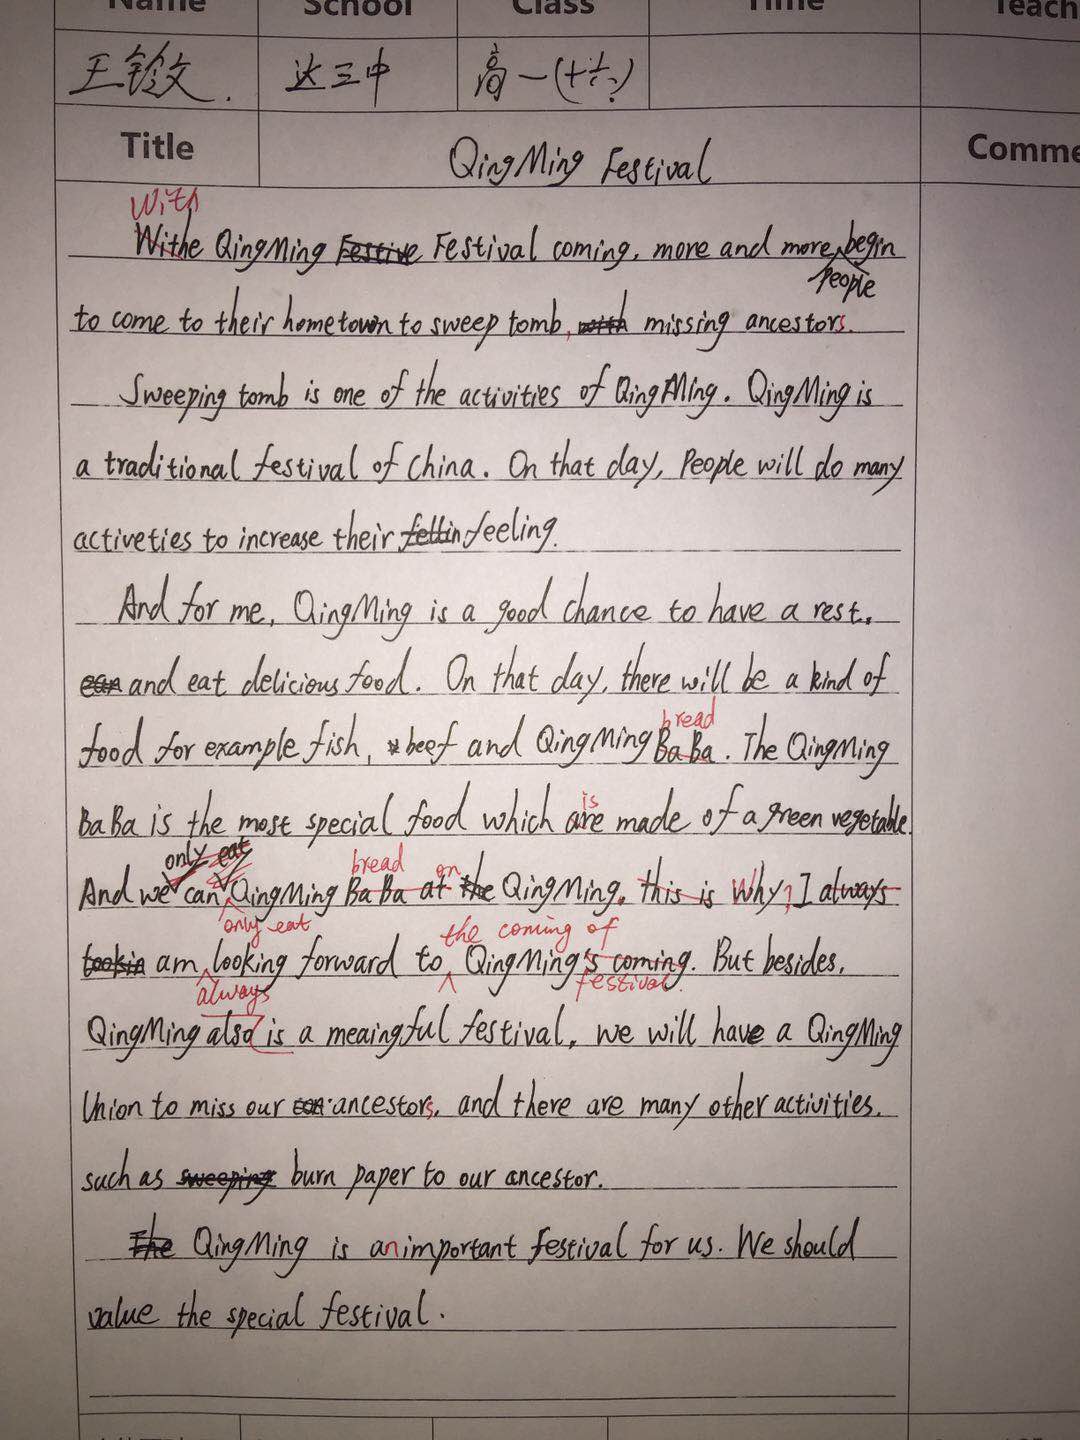 Name School Class Time Teach
王铃文. 达三中 高一(十六)
Title QingMing Festival Comme
With
Withe QingMing Festive Festival coming, more and more begin
people
to come to their hometown to sweep tomb, with missing ancestors.
Sweeping tomb is one of the activities of QingMing. QingMing is
a traditional festival of China. On that day, People will do many
activeties to increase their fellin feeling.
And for me, QingMing is a good chance to have a rest,
can and eat delicious food. On that day, there will be a kind of
bread
food for example fish, beef and QingMing BaBa. The QingMing
is
BaBa is the most special food which are made of a green vegetable.
only eat bread on
And we can QingMing BaBa at the QingMing. this is Why, I always
only eat the coming of
tookin am looking forward to QingMing's coming. But besides,
always festival.
QingMing also is a meaingful festival, we will have a QingMing
Union to miss our ancestors, and there are many other activities.
such as sweeping burn paper to our ancestor.
The QingMing is an important festival for us. We should
value the special festival.